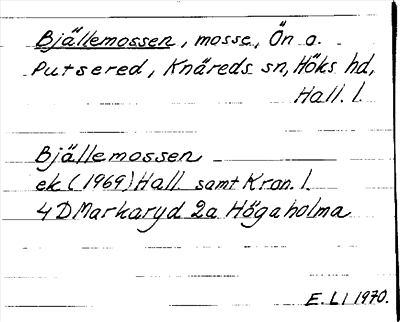 Bjällemossen, mosse, Ön o.
Putsered, Knäreds sn, Höks hd,
Hall. l.
Bjällemossen
ek (1969) Hall samt Kron. l.
4D Markaryd 2a Högaholma
E. LI 1970.